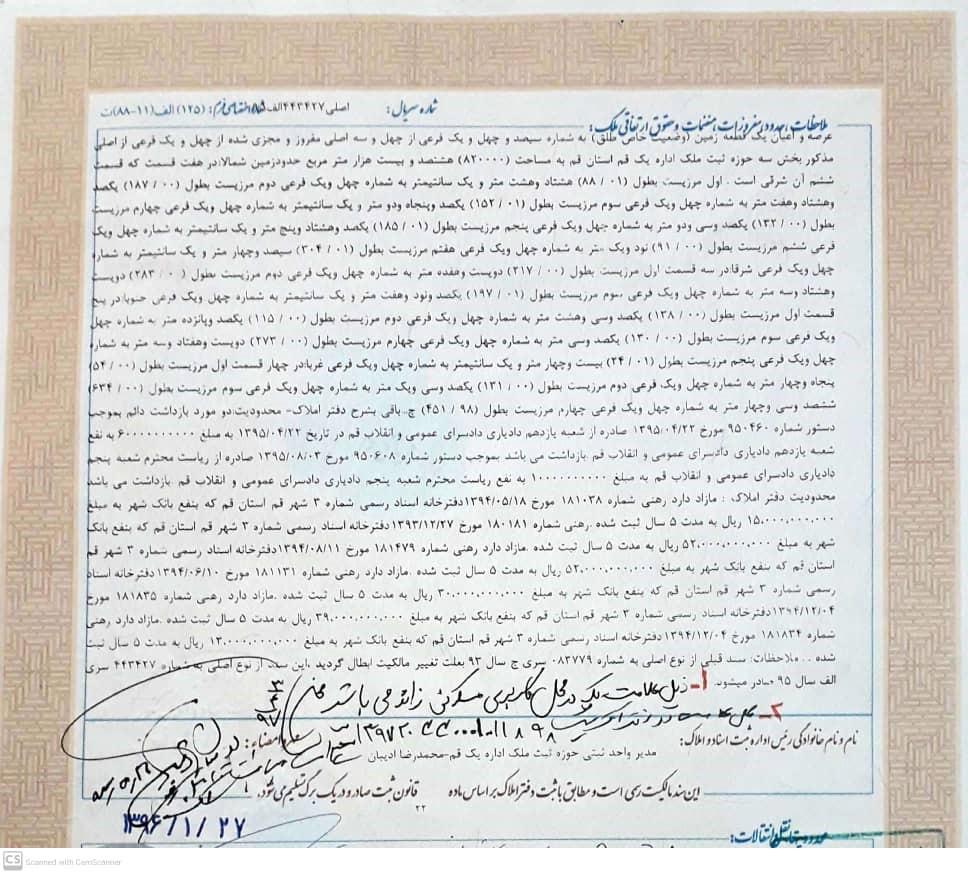 شماره سریال: اصلی ۴۴۳۴۲۷ الف ۹۵ (۱۲۵) الف (۱۱-۸۸)ت
ملاحظات، حدود، مفروزات، مستثنیات و حقوق ارتفاقی ملک:
عرصه و اعیان یک قطعه زمین (وضعیت خاص طلق) به شماره سیصد و چهل و یک فرعی از چهل و سه اصلی مفروز و مجزی شده از چهل و یک فرعی از اصلی
مذکور بخش سه حوزه ثبت ملک اداره یک قم استان قم به مساحت (۸۲۰۰۰۰) هشتصد و بیست هزار متر مربع حدودزمین شمالا:در هفت قسمت که قسمت
ششم آن شرقی است . اول مرزیست بطول (۰۱ / ۸۸) هشتاد وهشت متر و یک سانتیمتر به شماره چهل ویک فرعی دوم مرزیست بطول (۰۰ / ۱۸۷) یکصد
وهشتاد وهفت متر به شماره چهل ویک فرعی سوم مرزیست بطول (۰۱ / ۱۵۲) یکصد وپنجاه ودو متر و یک سانتیمتر به شماره چهل ویک فرعی چهارم مرزیست
بطول (۰۰ / ۱۳۲) یکصد وسی ودو متر به شماره چهل ویک فرعی پنجم مرزیست بطول (۰۱ / ۱۸۵) یکصد وهشتاد وپنج متر و یک سانتیمتر به شماره چهل ویک
فرعی ششم مرزیست بطول (۰۰ / ۹۱) نود ویک متر به شماره چهل ویک فرعی هفتم مرزیست بطول (۰۱ / ۳۰۴) سیصد وچهار متر و یک سانتیمتر به شماره
چهل ویک فرعی شرقا:در سه قسمت اول مرزیست بطول (۰۰ / ۲۱۷) دویست وهفده متر به شماره چهل ویک فرعی دوم مرزیست بطول (۰۰ / ۲۸۳) دویست
وهشتاد وسه متر به شماره چهل ویک فرعی سوم مرزیست بطول (۰۱ / ۱۹۷) یکصد ونود وهفت متر و یک سانتیمتر به شماره چهل ویک فرعی جنوبا:در پنج
قسمت اول مرزیست بطول (۰۰ / ۱۳۸) یکصد وسی وهشت متر به شماره چهل ویک فرعی دوم مرزیست بطول (۰۰ / ۱۱۵) یکصد وپانزده متر به شماره چهل
ویک فرعی سوم مرزیست بطول (۰۰ / ۱۳۰) یکصد وسی متر به شماره چهل ویک فرعی چهارم مرزیست بطول (۰۰ / ۲۷۳) دویست وهفتاد وسه متر به شماره
چهل ویک فرعی پنجم مرزیست بطول (۰۱ / ۲۴) بیست وچهار متر و یک سانتیمتر به شماره چهل ویک فرعی غربا:در چهار قسمت اول مرزیست بطول (۰۰ / ۵۴)
پنجاه وچهار متر به شماره چهل ویک فرعی دوم مرزیست بطول (۰۰ / ۱۳۱) یکصد وسی ویک متر به شماره چهل ویک فرعی سوم مرزیست بطول (۰۰ / ۶۳۴)
ششصد وسی وچهار متر به شماره چهل ویک فرعی چهارم مرزیست بطول (۹۸ / ۴۵۱) ج-باقی بشرح دفتر املاک- محدودیت:دو مورد بازداشت دائم بموجب
دستور شماره ۹۵۰۴۶۰ مورخ ۱۳۹۵/۰۴/۲۲ صادره از شعبه یازدهم دادیاری دادسرای عمومی و انقلاب قم در تاریخ ۱۳۹۵/۰۴/۲۲ به مبلغ ۶۰۰۰۰۰۰۰۰۰۰ به نفع
شعبه یازدهم دادیاری دادسرای عمومی و انقلاب قم .بازداشت می باشد بموجب دستور شماره ۹۵۰۶۰۸ مورخ ۱۳۹۵/۰۸/۰۳ صادره از ریاست محترم شعبه پنجم
دادیاری دادسرای عمومی و انقلاب قم به مبلغ ۱۰۰۰۰۰۰۰۰۰۰ به نفع ریاست محترم شعبه پنجم دادیاری دادسرای عمومی و انقلاب قم .بازداشت می باشد
محدودیت دفتر املاک : مازاد دارد رهنی شماره ۱۸۱۰۳۸ مورخ ۱۳۹۴/۰۵/۱۸دفترخانه اسناد رسمی شماره ۳ شهر قم استان قم که بنفع بانک شهر به مبلغ
۱۵,۰۰۰,۰۰۰,۰۰۰ ریال به مدت ۵ سال ثبت شده .رهنی شماره ۱۸۰۱۸۱ مورخ ۱۳۹۳/۱۲/۲۷دفترخانه اسناد رسمی شماره ۳ شهر قم استان قم که بنفع بانک
شهر به مبلغ ۵۲,۰۰۰,۰۰۰,۰۰۰ ریال به مدت ۵ سال ثبت شده .مازاد دارد رهنی شماره ۱۸۱۴۷۹ مورخ ۱۳۹۴/۰۸/۱۱دفترخانه اسناد رسمی شماره ۳ شهر قم
استان قم که بنفع بانک شهر به مبلغ ۵۲,۰۰۰,۰۰۰,۰۰۰ ریال به مدت ۵ سال ثبت شده .مازاد دارد رهنی شماره ۱۸۱۱۳۱ مورخ ۱۳۹۴/۰۶/۱۰دفترخانه اسناد
رسمی شماره ۳ شهر قم استان قم که بنفع بانک شهر به مبلغ ۳۰,۰۰۰,۰۰۰,۰۰۰ ریال به مدت ۵ سال ثبت شده .مازاد دارد رهنی شماره ۱۸۱۸۳۵ مورخ
۱۳۹۴/۱۲/۰۴دفترخانه اسناد رسمی شماره ۳ شهر قم استان قم که بنفع بانک شهر به مبلغ ۳۹,۰۰۰,۰۰۰,۰۰۰ ریال به مدت ۵ سال ثبت شده .مازاد دارد رهنی
شماره ۱۸۱۸۳۴ مورخ ۱۳۹۴/۱۲/۰۴دفترخانه اسناد رسمی شماره ۳ شهر قم استان قم که بنفع بانک شهر به مبلغ ۱۳,۰۰۰,۰۰۰,۰۰۰ ریال به مدت ۵ سال ثبت
شده . . ملاحظات: سند قبلی از نوع اصلی به شماره ۰۸۳۷۷۹ سری ج سال ۹۳ بعلت تغییر مالکیت ابطال گردید ،این سند از نوع اصلی به شماره ۴۴۳۴۲۷ سری
الف سال ۹۵ صادر میشود.
۱- ذیل علامت یک در محل کاربری مسکونی زائد می باشد
۲-
نام و نام خانوادگی رئیس اداره ثبت اسناد و املاک: مهر و امضاء:
مدیر واحد ثبتی حوزه ثبت ملک اداره یک قم-محمدرضا ادیبان
این سند مالکیت رسمی است و مطابق با ثبت دفتر املاک بر اساس ماده ۲۲ قانون ثبت صادر و در یک برگ تسلیم می شود.
۱۳۹۶/۱/۲۷
نقل و انتقالات:
CS Scanned with CamScanner